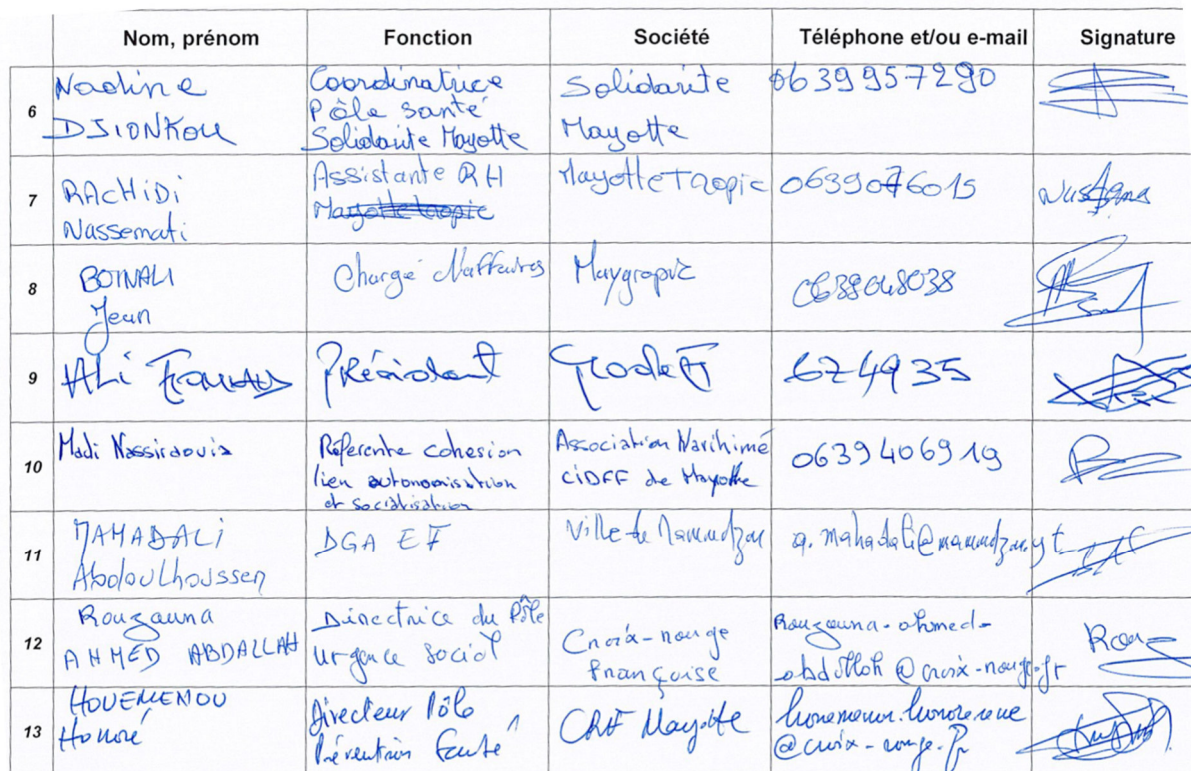 Nom, prénom Fonction Société Téléphone et/ou e-mail Signature
6
Nadine
DJIONKOU
Coordinatrice
Pôle santé
Solidarite Mayotte
Solidarite
Mayotte
0639957290
7
RACHIDI
Nassemati
Assistante RH
Mayotte tropic
Mayotte Tropic
0639076015
8
BOINALI
Jean
Chargé d'affaires
9
Ali
Président
674935
10
Madi Nassiraouia
Référente cohesion
lien autonomisation
et socialisation
Association Narihimé
CIDFF de Mayotte
0639406919
11
MAHADALI
Abdoulhoussen
DGA EF
Ville de Mamoudzou
a.mahadali@mamoudzou.yt
12
Rouzouna
AHMED ABDALLAH
Directrice du Pôle
urgence social
Croix-rouge
française
Rouzouna-ahmed-
abdallah@croix-rouge.fr
13
HOUEMENOU
Honoré
Directeur Pôle
Prévention Santé
CRF Mayotte
@croix-rouge.fr